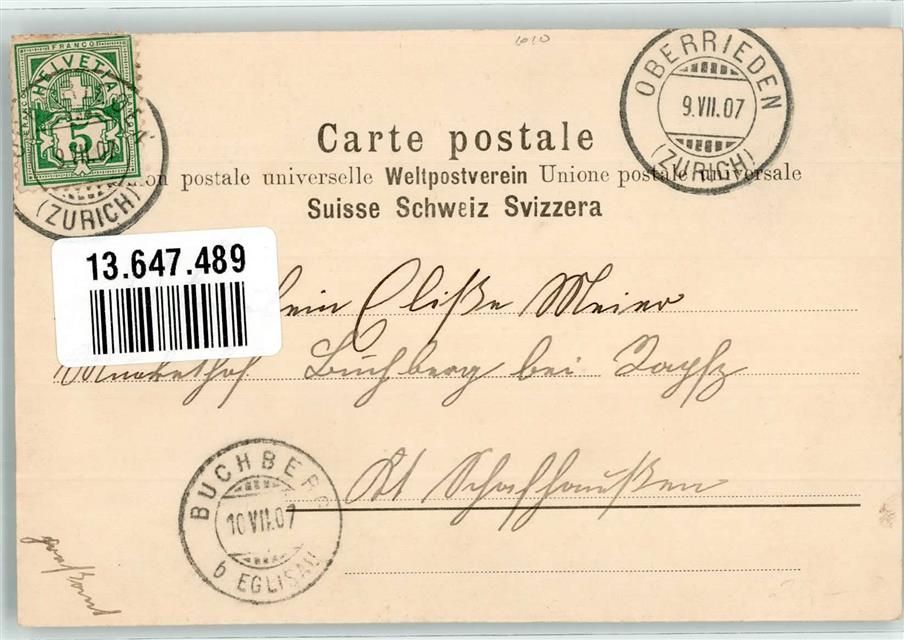 1010
FRANCO
HELVETIA
5
(ZURICH)
OBERRIEDEN
9.VII.07
(ZURICH)
Carte postale
postale universelle Weltpostverein Unione postale universale
Suisse Schweiz Svizzera
13.647.489
Elisse Meier
Buchberg bei
Kt Schaffhaußen
BUCHBERG
10VII.07
b EGLISAU